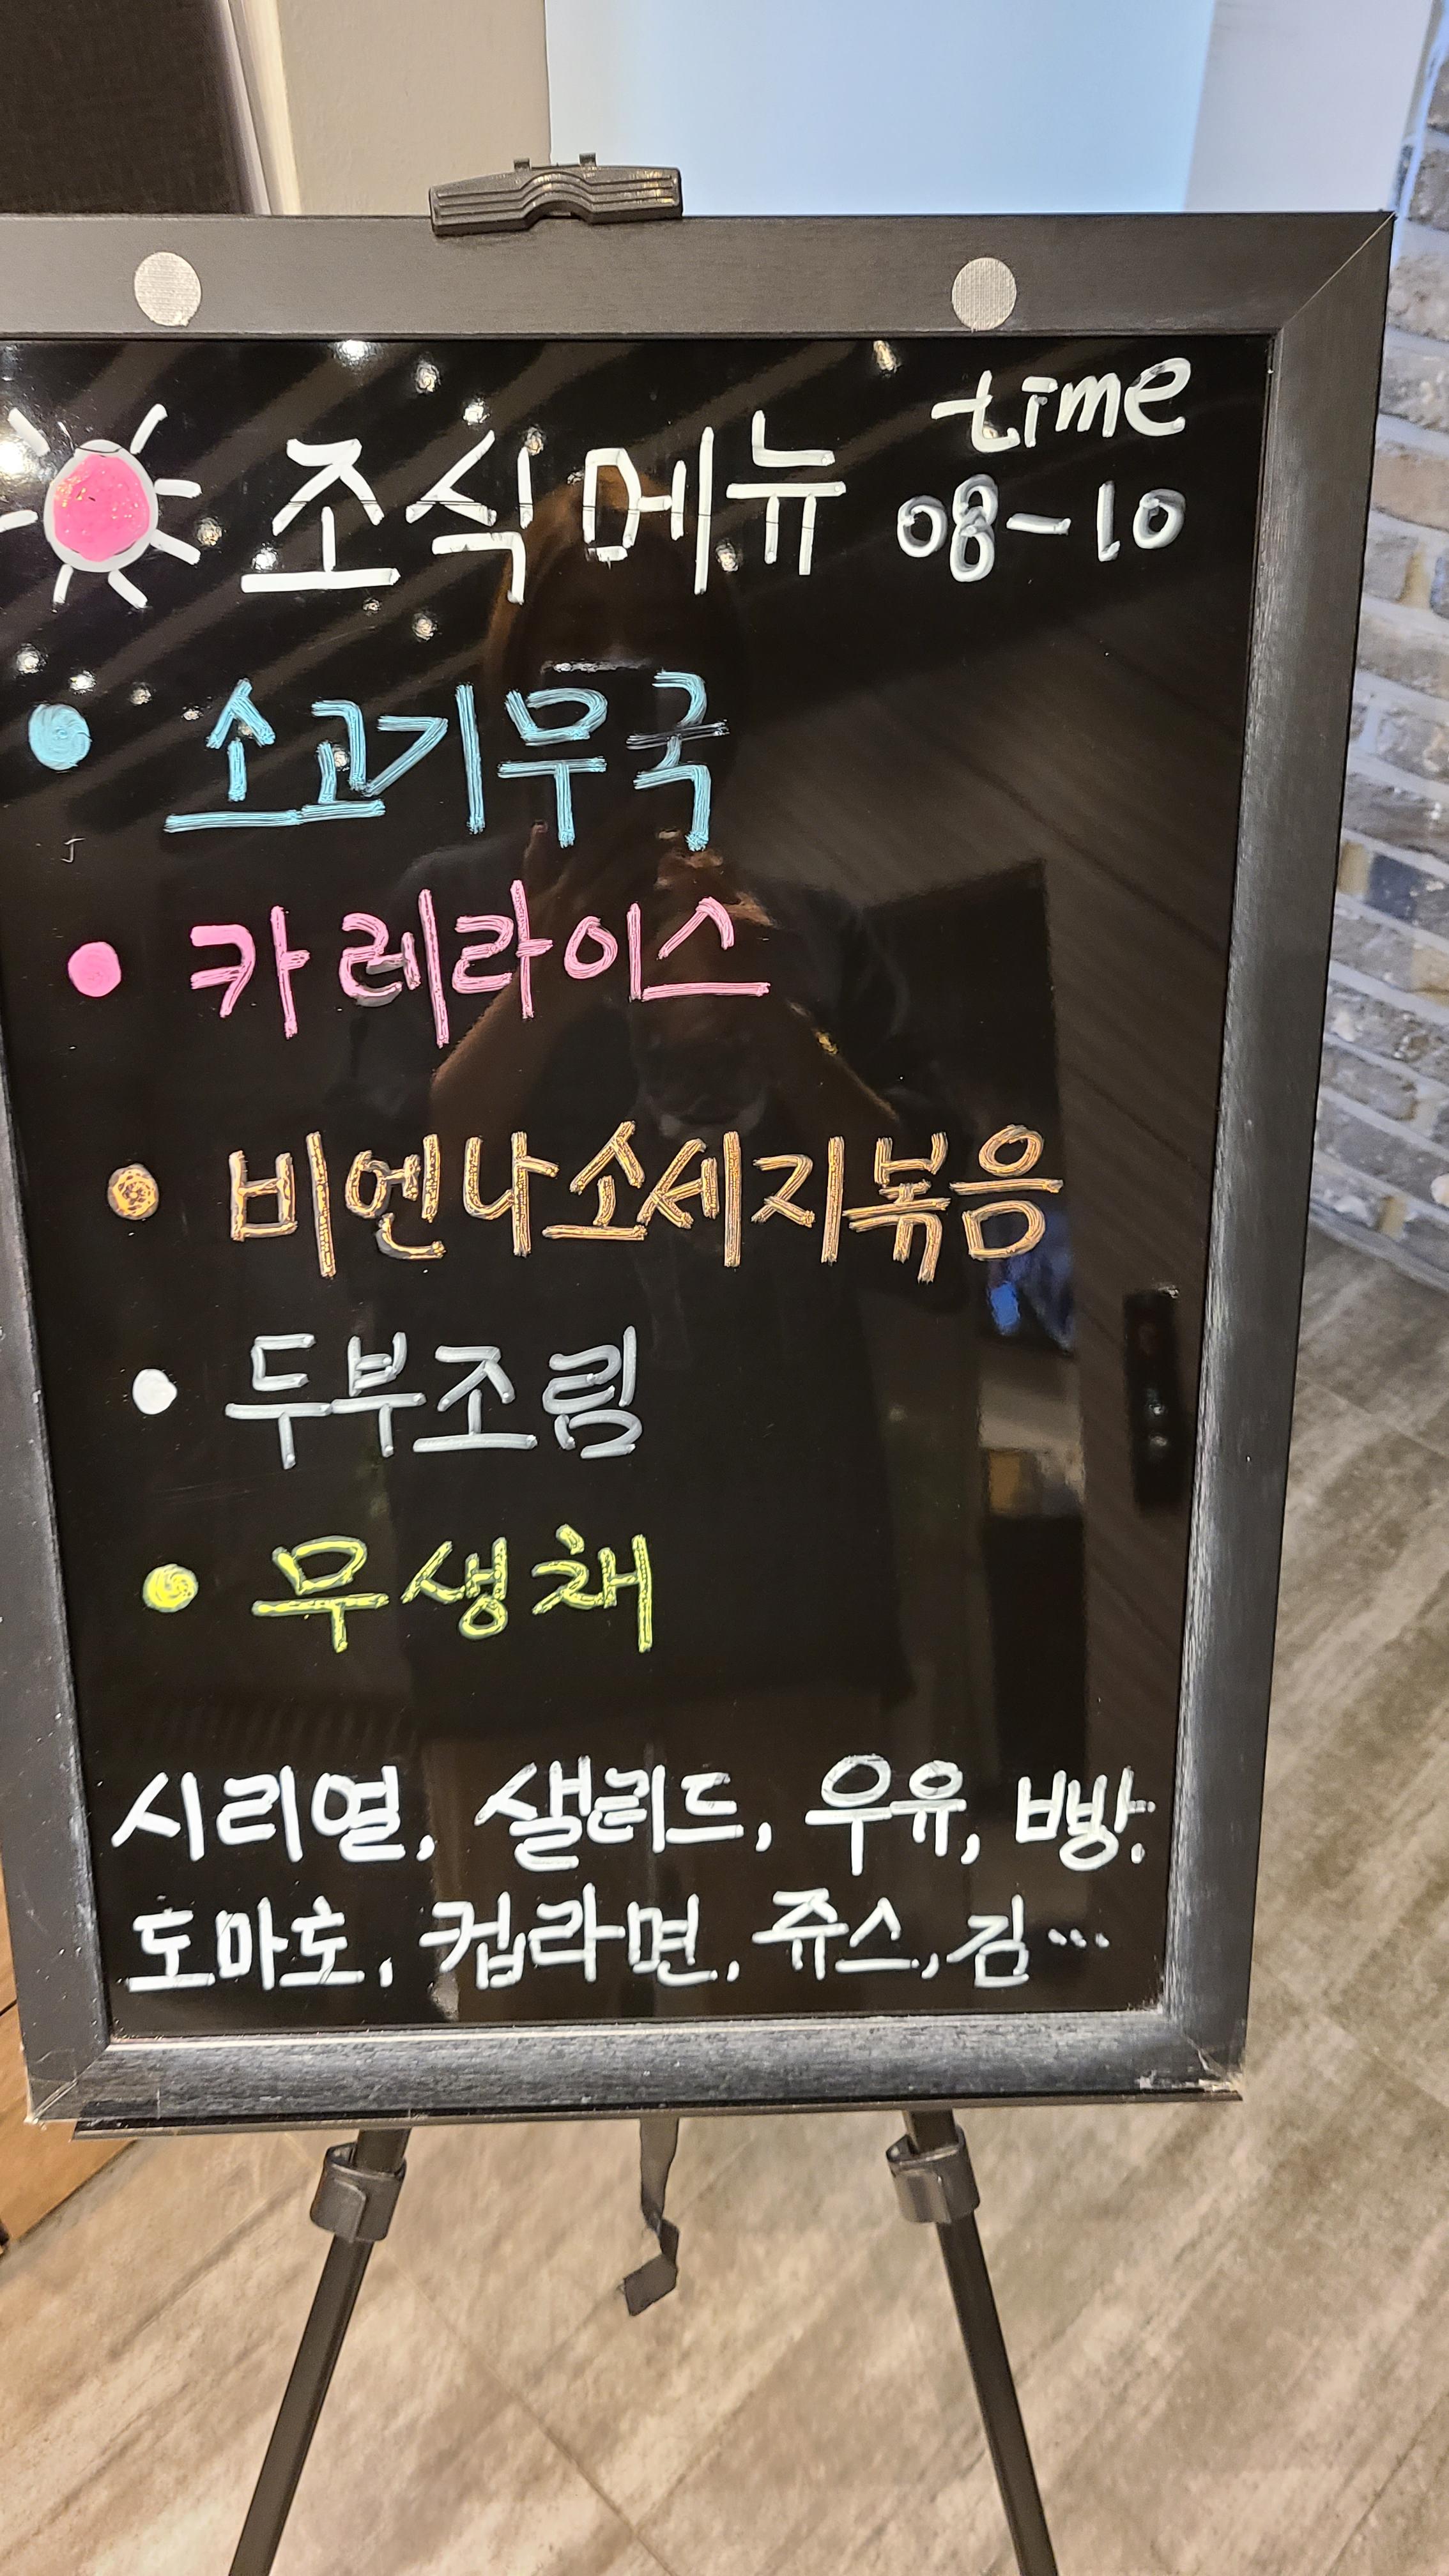 time
조식메뉴 08-10
• 소고기무국
• 카레라이스
• 비엔나소세지볶음
• 두부조림
• 무생채
시리얼, 샐러드, 우유, 빵.
토마토, 컵라면, 쥬스, 김…